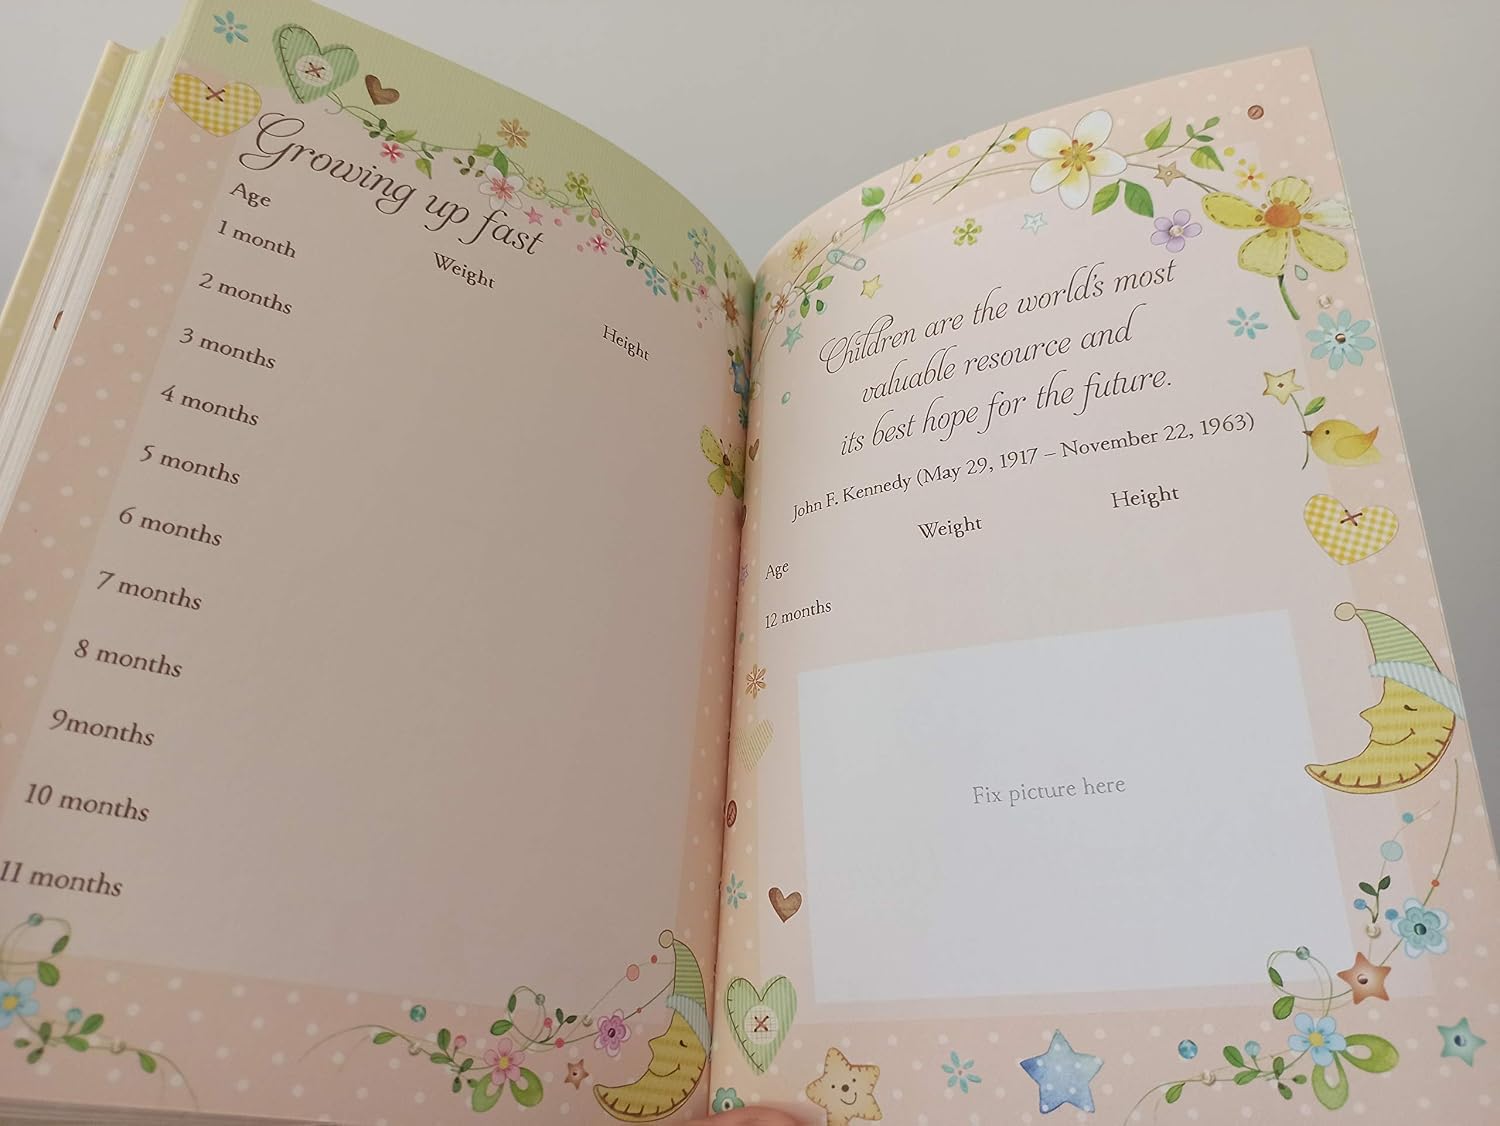 Growing up fast
Age
Weight
Height
1 month
2 months
3 months
4 months
5 months
6 months
7 months
8 months
9months
10 months
11 months
Children are the world's most
valuable resource and
its best hope for the future.
John F. Kennedy (May 29, 1917 – November 22, 1963)
Age
Weight
Height
12 months
Fix picture here